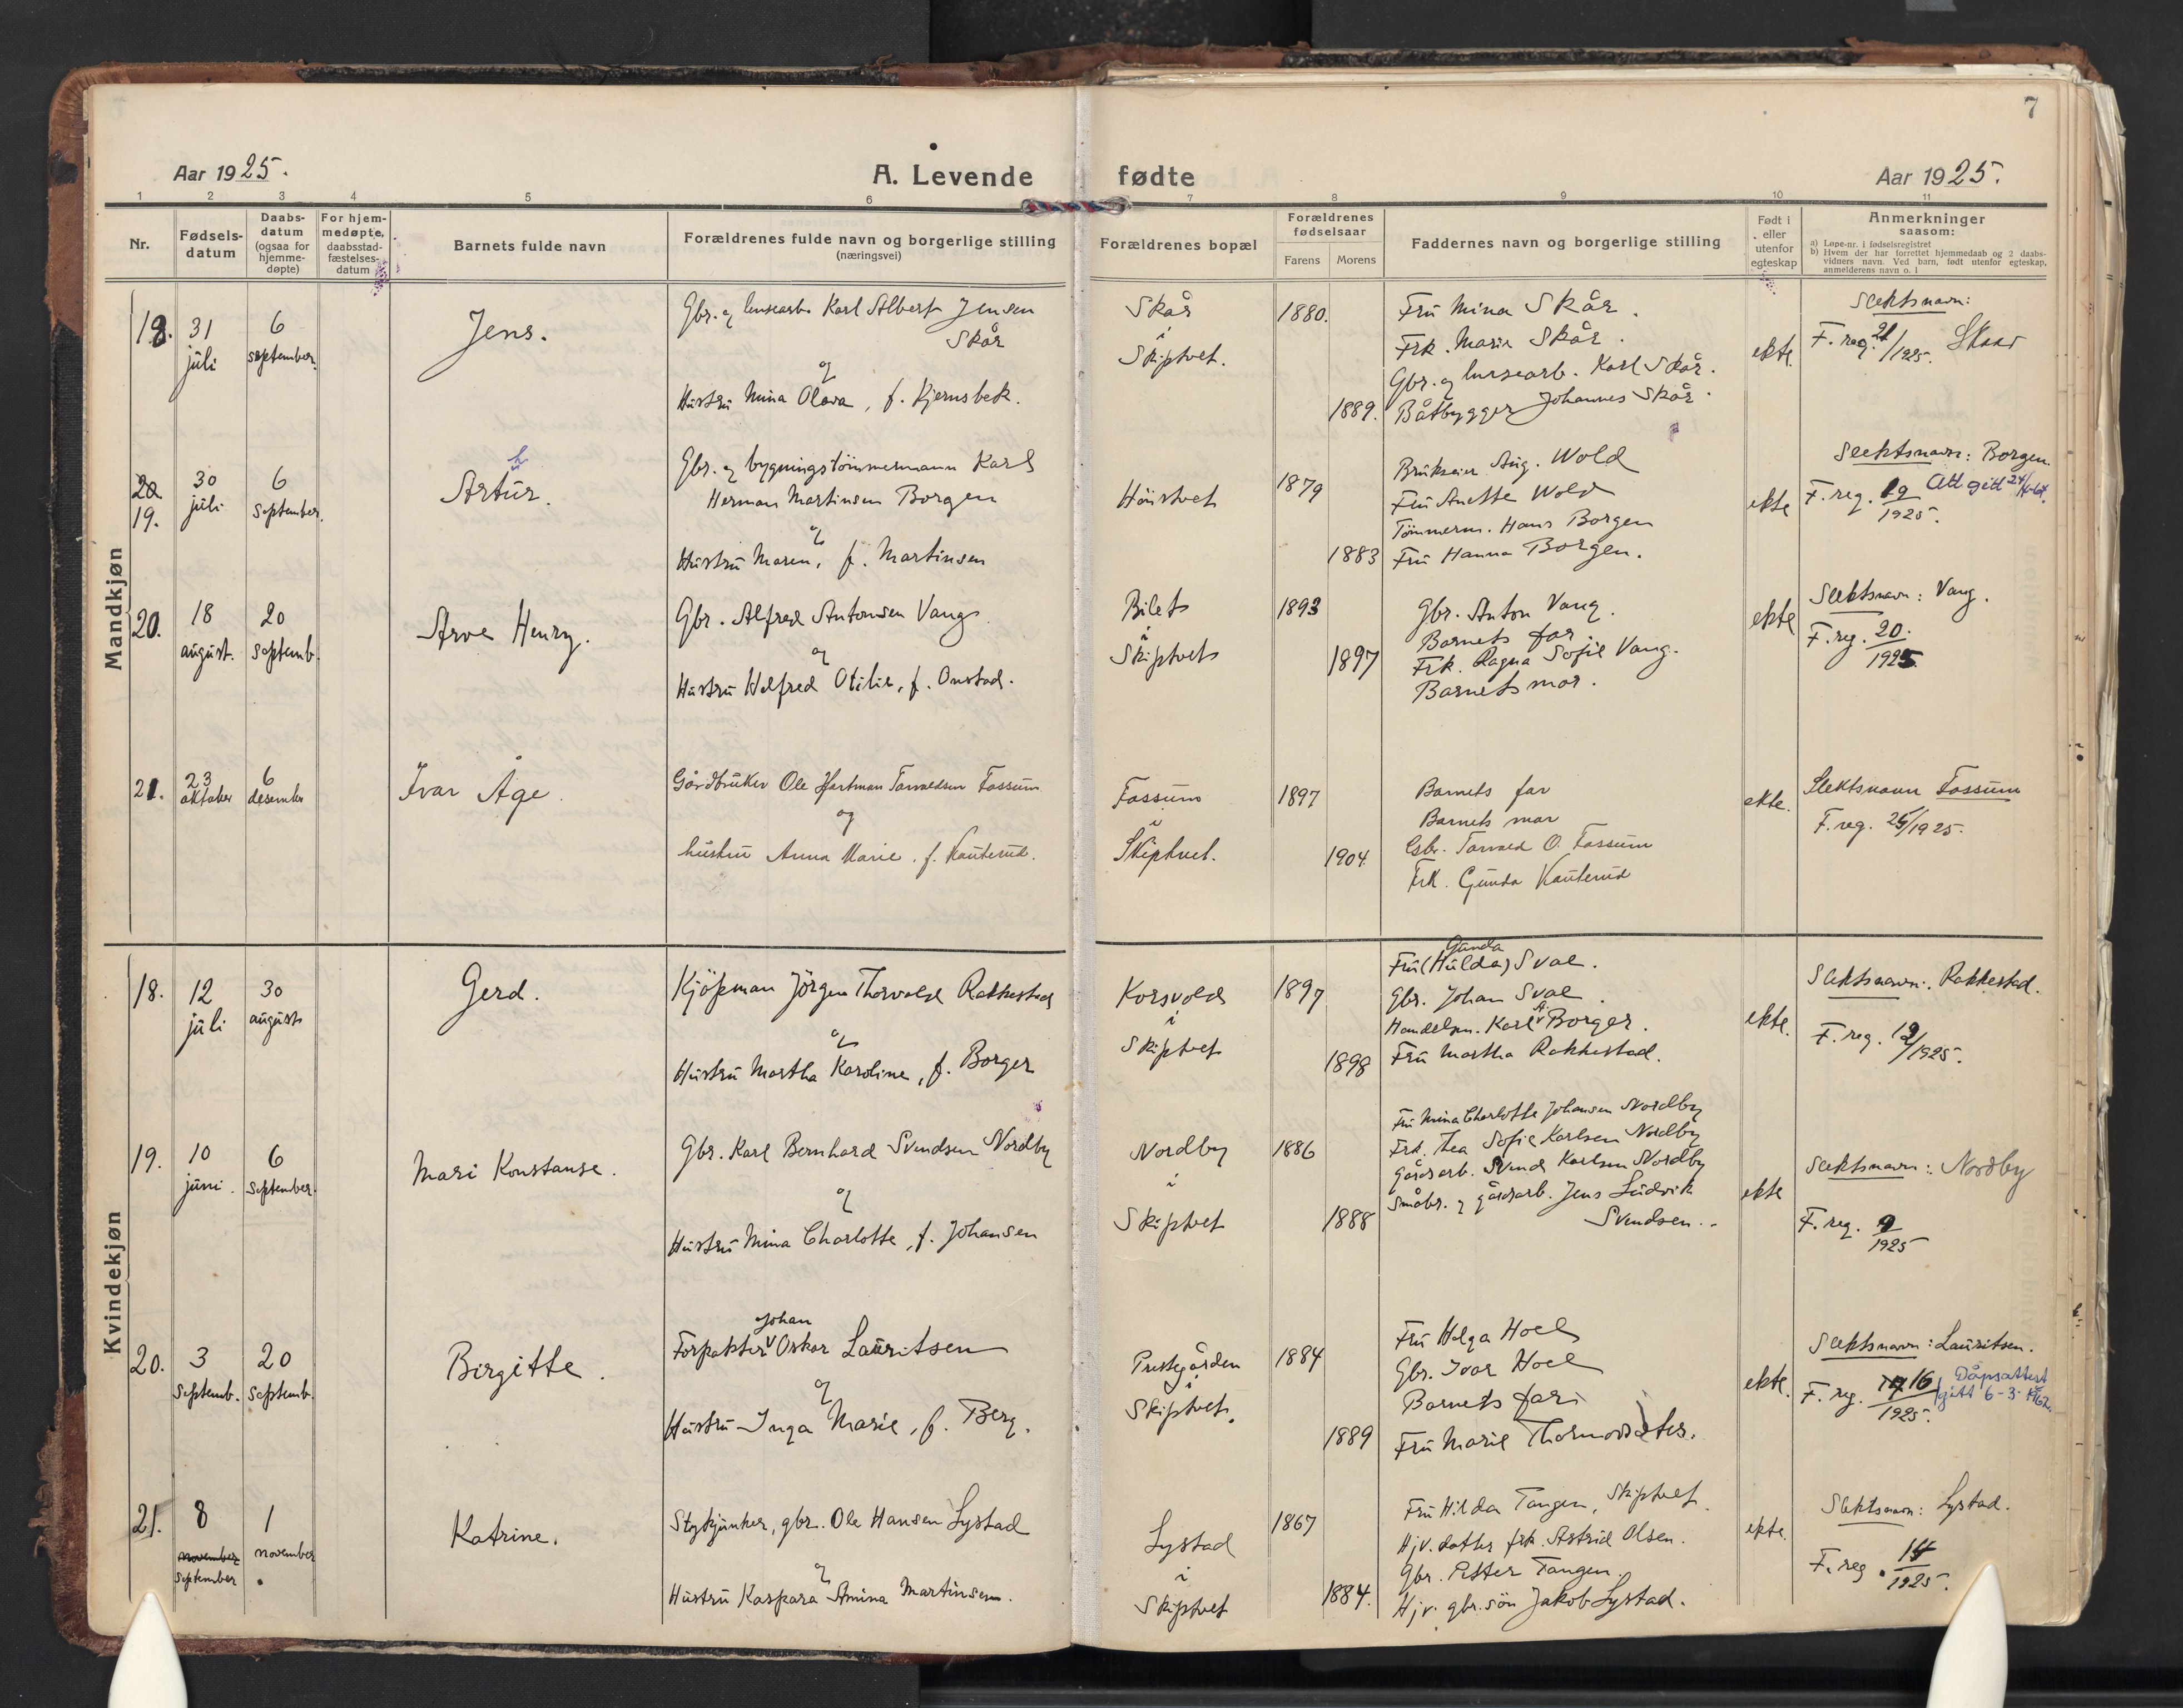 7
Aar 1925.
A. Levende fødte
Aar 1925.
1 2 3 4 5 6 7 8 9 10 11
Nr.
Fødsels-
datum
Daabs-
datum
(ogsaa for
hjemme-
døpte)
For hjem-
medøpte,
daabsstad-
fæstelses-
datum
Barnets fulde navn
Forældrenes fulde navn og borgerlige stilling
(næringsvei)
Forældrenes bopæl
Forældrenes
fødselsaar
Farens Morens
Faddernes navn og borgerlige stilling
Født i
eller
utenfor
egteskap
Anmerkninger
saasom:
a) Løpe-nr. i fødselsregistret
b) Hvem der har forrettet hjemmedaab og 2 daabs-
vidners navn. Ved barn, født utenfor egteskap,
anmelderens navn o. l
Mandkjøn
18.
31
juli
6
september.
Jens.
Gbr. og Karl Albert Jensen
Skår
og
Hustru Mina Olava, f. Kjernsbek.
Skår
i
Skiptvet.
1880.
1889.
Frü Mina Skår.
Frk. Maria Skår.
Gbr. og Karl Skår.
Båtbygger Johannes Skår.
ekte.
Slektsnavn:
F. reg. 21/1925. Skaar
20
19.
30
juli
6
September.
h
Artur.
Gbr. og bygningstömmermann Karl
Herman Martinsen Borgen
og
Hustru Maren, f. Martinsen
1879
1883
Brukseier Aug. Wold
Frü Anette Wold
Tömmerm. Hans Borgen
Frü Hanna Borgen.
ekte
Slektsnavn: Borgen.
F. reg. 19/1925. Att gitt
20.
18
august.
20
Septemb.
Arve Henry.
Gbr. Alfred Antonsen Vang
og
Hustru Helfred Otilie, f. Onstad.
Bilet
i
Skiptvet
1893
1897
Gbr. Anton Vang.
Barnets far
Frk. Ragna Sofie Vang.
Barnets mor.
ekte
Slektsnavn: Vang.
F. reg. 20.
1925
21.
23
oktober
6
desember
Ivar Åge.
Gårdbruker Ole Hartman Torvaldsen Fossum
og
hustru Anna Marie, f. Kauterud.
Fossum
i
Skiptvet.
1897
1904.
Barnets far
Barnets mor
Gbr. Torvald O. Fossum
Frk. Gunda Kauterud
ekte.
Slektsnavn Fossum
F. reg. 25/1925.
Kvindekjøn
18.
12
juli
30
august
Gerd.
Kjöpman Jörgen Thorvald Rakkestad
og
Hustru Martha Karoline, f. Borger
Korsvold
i
Skiptvet
1897
1898
Gunda
Frü (Hulda) Svae.
Gbr. Johan Svae.
Handelsm. Karl Borger.
Frü Martha Rakkestad.
ekte.
Slektsnavn: Rakkestad.
F. reg. 12/1925.
19.
10
juni.
6
September.
Mari Konstanse.
Gbr. Karl Bernhard Svendsen Nordby
og
Hustru Mina Charlotte, f. Johansen
Nordby
i
Skiptvet
1886
1888
Frü Mina Charlotte Johansen Nordby
Frk. Thea Sofie Karlsen Nordby
Gårdsarb. Svend Karlsen Nordby
Småbr. og gårdsarb. Jens Ludvik
Svendsen.
ekte
Slektsnavn: Nordby
F. reg. 9
1925
20.
3
Septemb.
20
Septemb.
Birgitte.
Johan
Forpakter Oskar Lauritsen
og
Hustru Inga Marie, f. Berg.
Prestegården
i
Skiptvet.
1884
1889
Frü Helga Hoel
Gbr. Ivar Hoel
Barnets far
Frü Marie Thormodsæter.
ekte.
Slektsnavn: Lauritsen.
F. reg. 16
1925. Dåpsattest
gitt 6-3-1962.
21.
8
november
September
1
november
Katrine.
Stykjunker, gbr. Ole Hansen Lystad
og
Hustru Kaspara Amina Martinsen.
Lystad
i
Skiptvet
1867
1884.
Frü Hilda Tangen, Skiptvet.
Hjv. datter frk. Astrid Olsen.
Gbr. Petter Tangen.
Hjv. gbr. sön Jakob Lystad.
ekte.
Slektsnavn: Lystad.
F. reg. 14
1925.